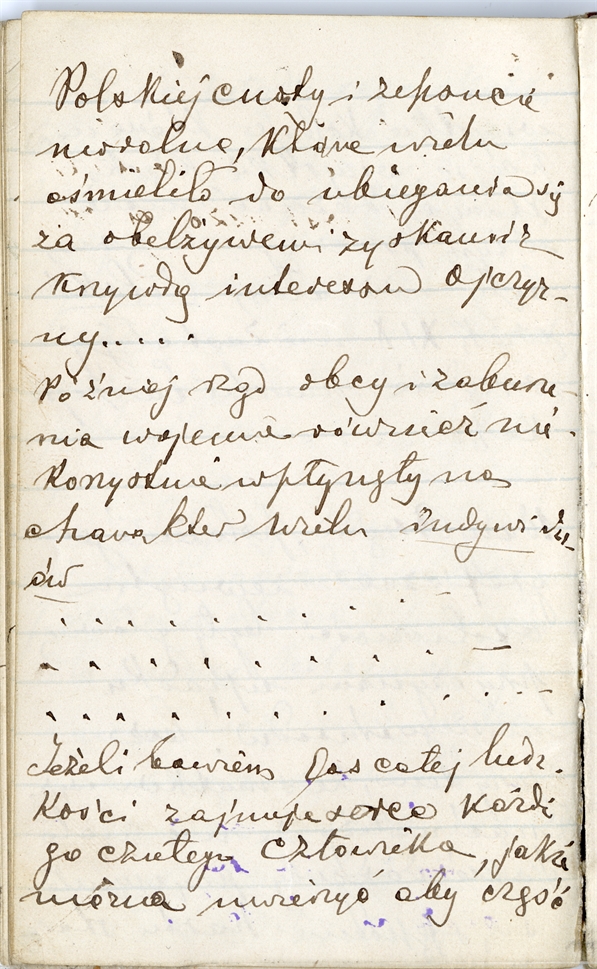 Polskiej cnoty i zepsucie
moralne, które wielu
ośmieliło do ubiegania się
za obelżywemi zyskami z
krzywdą interesów Ojczyz-
ny.....
Później rząd obcy i zaburze-
nia wojenne również nie-
korzystnie wpłynęły na
charakter wielu indywidu-
ów
. . . . . . . . . . –
. . . . . . . . . . –
. . . . . . . . . . . . –
Jeżeli bowiem los całej ludz-
kości zajmuje serce każde
go czułego człowieka, jakże
można wierzyć aby część